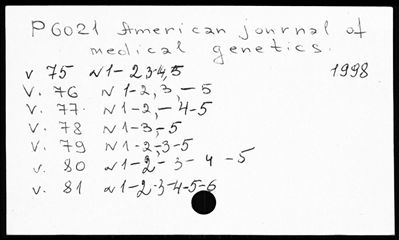 P6021 American journal of
medical genetics.
v 75 N1-2,3-4,5 1998
V. 76 N1-2,3,-5
V. 77. N1-2,-4-5
V. 78 N1-3,-5
V. 79 N1-2,3-5
v. 80 N1-2-3-4-5
v. 81 N1-2-3-4-5-6